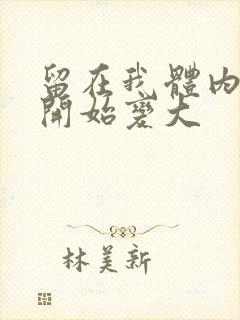 留在我體內
開始變大
林美新